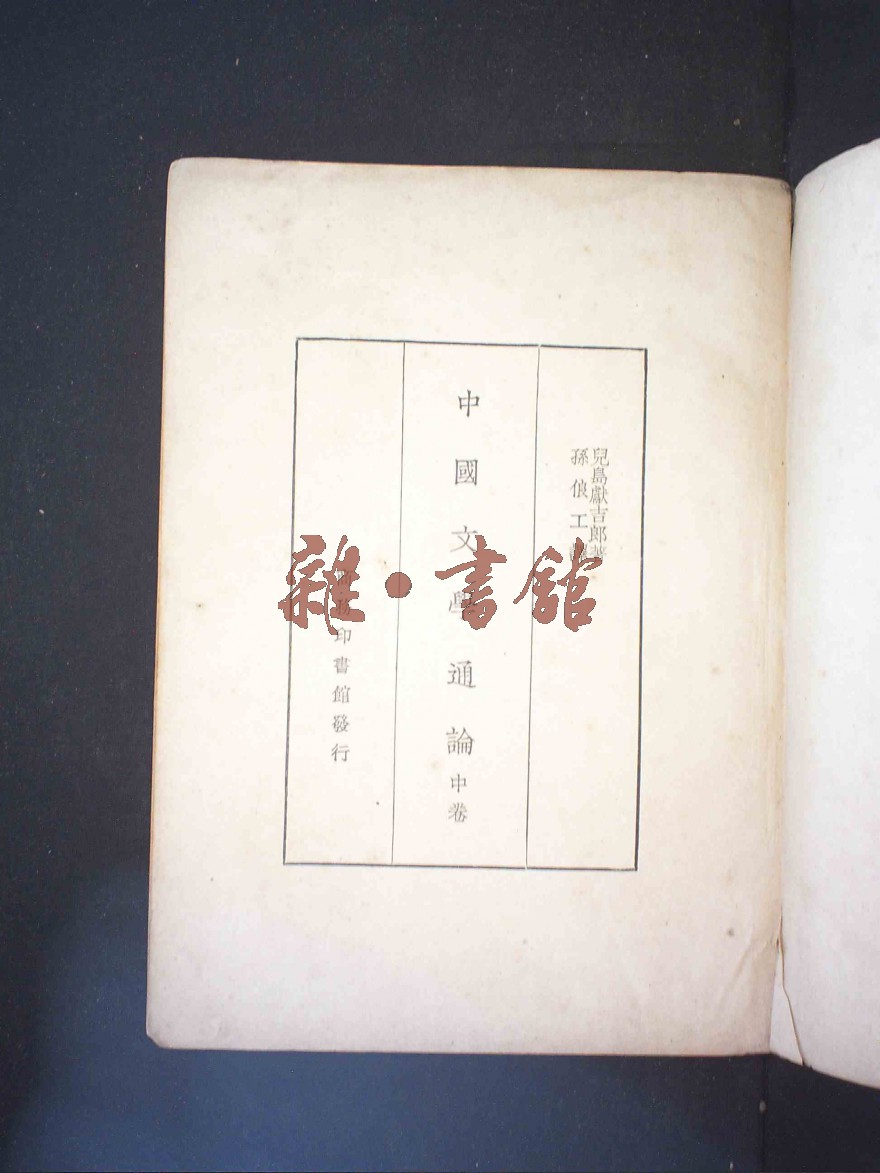 兒島獻吉郎著
孫俍工
中國文學通論中卷
務印書館發行
雜·書館